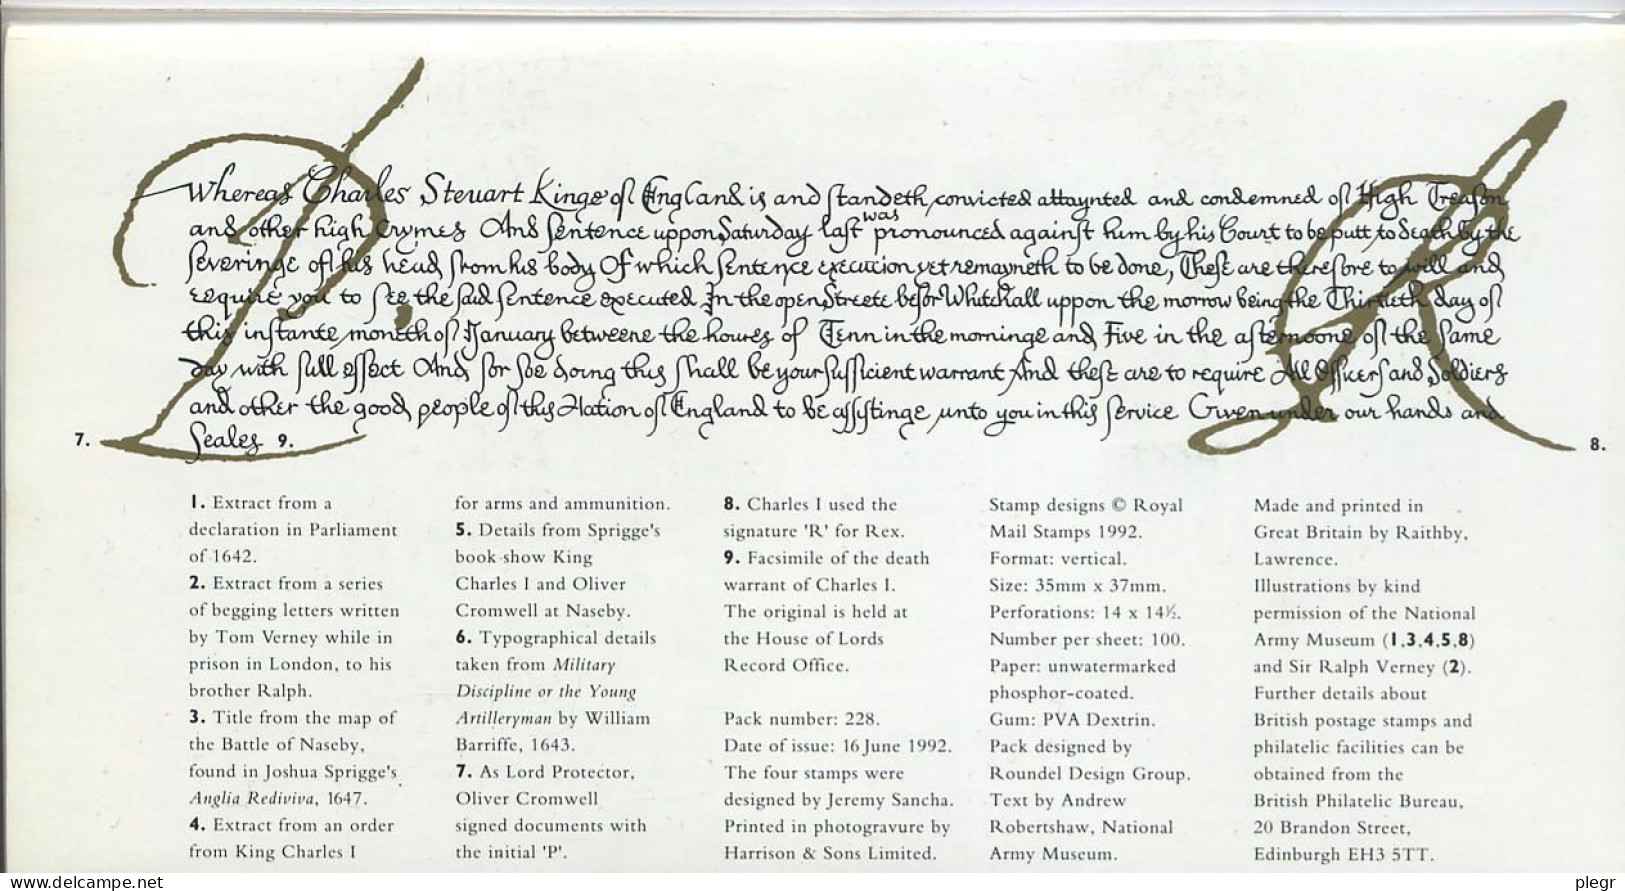 Whereas Charles Steuart Kinge of England is and standeth convicted attaynted and condemned of High Treason
and other high Crymes And sentence uppon Saturday last was pronounced against him by his Court to be putt to death by the
severinge of his head from his body Of which sentence execucion yet remayneth to be done, These are therefore to will and
require you to see the said sentence executed In the open Streete before Whitehall uppon the morrow being the Thirtieth day of
this instante moneth of January betweene the houres of Tenn in the morninge and Five in the afternoone of the same
day with full effect And for soe doing this shall be your sufficient warrant And these are to require All Officers and Soldiers
and other the good people of this Nation of England to be assistinge unto you in this service Given under our hands and
Seales 9.
7.
8.
1. Extract from a
declaration in Parliament
of 1642.
2. Extract from a series
of begging letters written
by Tom Verney while in
prison in London, to his
brother Ralph.
3. Title from the map of
the Battle of Naseby,
found in Joshua Sprigge's
Anglia Rediviva, 1647.
4. Extract from an order
from King Charles I
for arms and ammunition.
5. Details from Sprigge's
book show King
Charles I and Oliver
Cromwell at Naseby.
6. Typographical details
taken from Military
Discipline or the Young
Artilleryman by William
Barriffe, 1643.
7. As Lord Protector,
Oliver Cromwell
signed documents with
the initial 'P'.
8. Charles I used the
signature 'R' for Rex.
9. Facsimile of the death
warrant of Charles I.
The original is held at
the House of Lords
Record Office.
Pack number: 228.
Date of issue: 16 June 1992.
The four stamps were
designed by Jeremy Sancha.
Printed in photogravure by
Harrison & Sons Limited.
Stamp designs © Royal
Mail Stamps 1992.
Format: vertical.
Size: 35mm x 37mm.
Perforations: 14 x 14½.
Number per sheet: 100.
Paper: unwatermarked
phosphor-coated.
Gum: PVA Dextrin.
Pack designed by
Roundel Design Group.
Text by Andrew
Robertshaw, National
Army Museum.
Made and printed in
Great Britain by Raithby,
Lawrence.
Illustrations by kind
permission of the National
Army Museum (1,3,4,5,8)
and Sir Ralph Verney (2).
Further details about
British postage stamps and
philatelic facilities can be
obtained from the
British Philatelic Bureau,
20 Brandon Street,
Edinburgh EH3 5TT.
www.delcampe.net
plegr